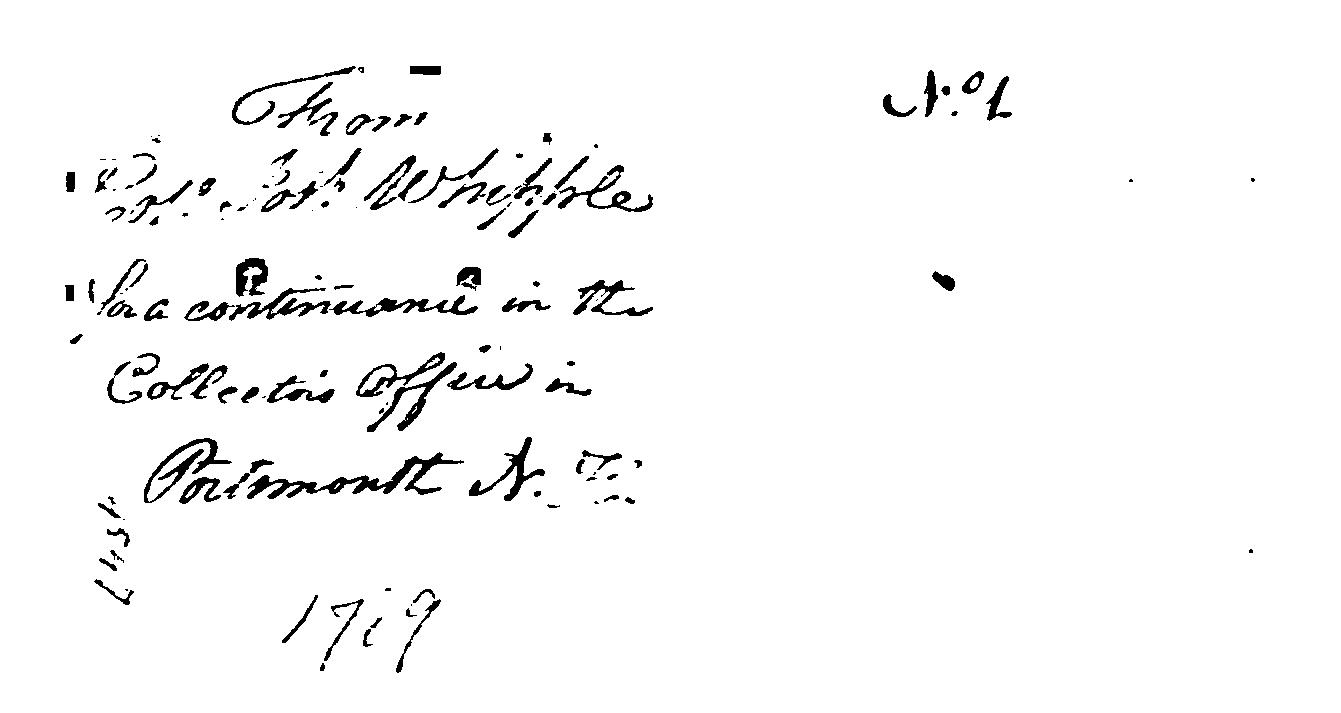 From
Colo. Josh Whipple
for a continuance in the
Collectors Office in
Portsmouth N.
No. 1